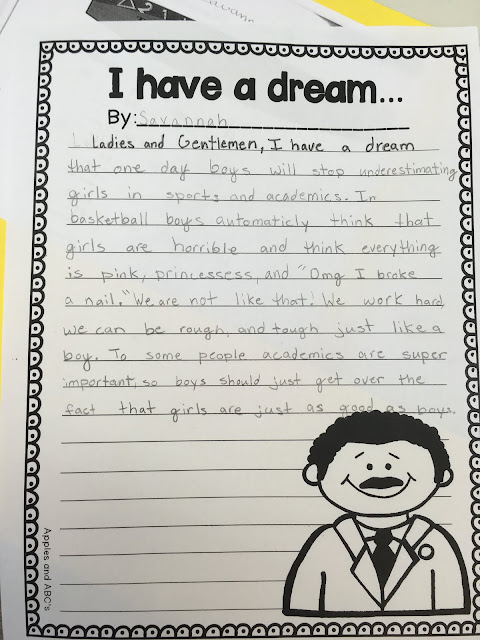 Savann
I have a dream...
By: Savannah
Ladies and Gentlemen, I have a dream
that one day boys will stop underestimating
girls in sports and academics. In
basketball boys automaticly think that
girls are horrible and think everything
is pink, princessess, and "Omg I broke
a nail." We are not like that! We work hard,
we can be rough, and tough just like a
boy. To some people academics are super
important, so boys should just get over the
fact that girls are just as good as boys.
Apples and ABC's